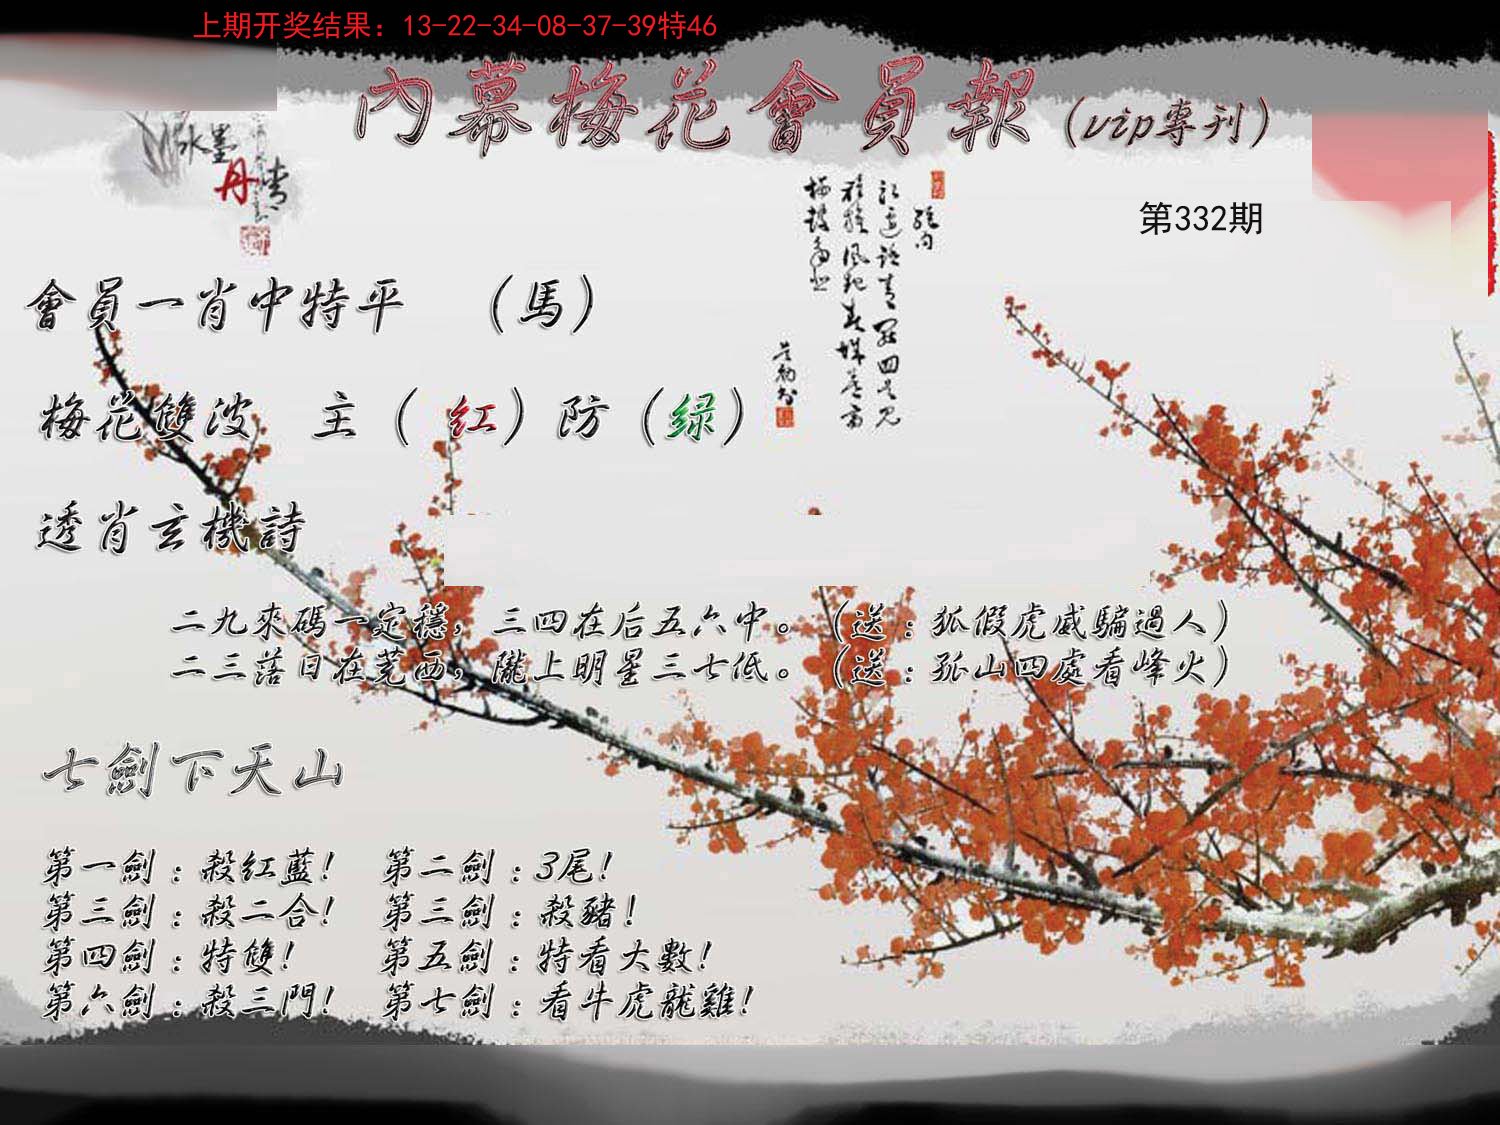 上期开奖结果：13-22-34-08-37-39特46
內幕梅花會員報（vip專刊）
水墨
丹青
第332期
會員一肖中特平　（馬）
梅花雙波　主（ 红）防（绿）
透肖玄機詩
二九來碼一定穩，三四在后五六中。（送：狐假虎威騙過人）
二三落日在荒西，隴上明星三七低。（送：孤山四處看峰火）
七劍下天山
第一劍：殺红藍！　第二劍：3尾！
第三劍：殺二合！　第三劍：殺豬！
第四劍：特雙！　第五劍：特看大數！
第六劍：殺三門！　第七劍：看牛虎龍雞！